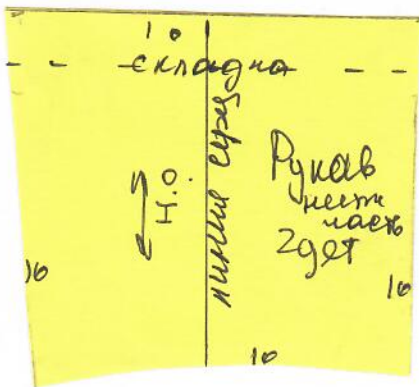 10
- - складка - -
Н.О.
нижний срез
Рукав
нижн
часть
2дет
10
10
10